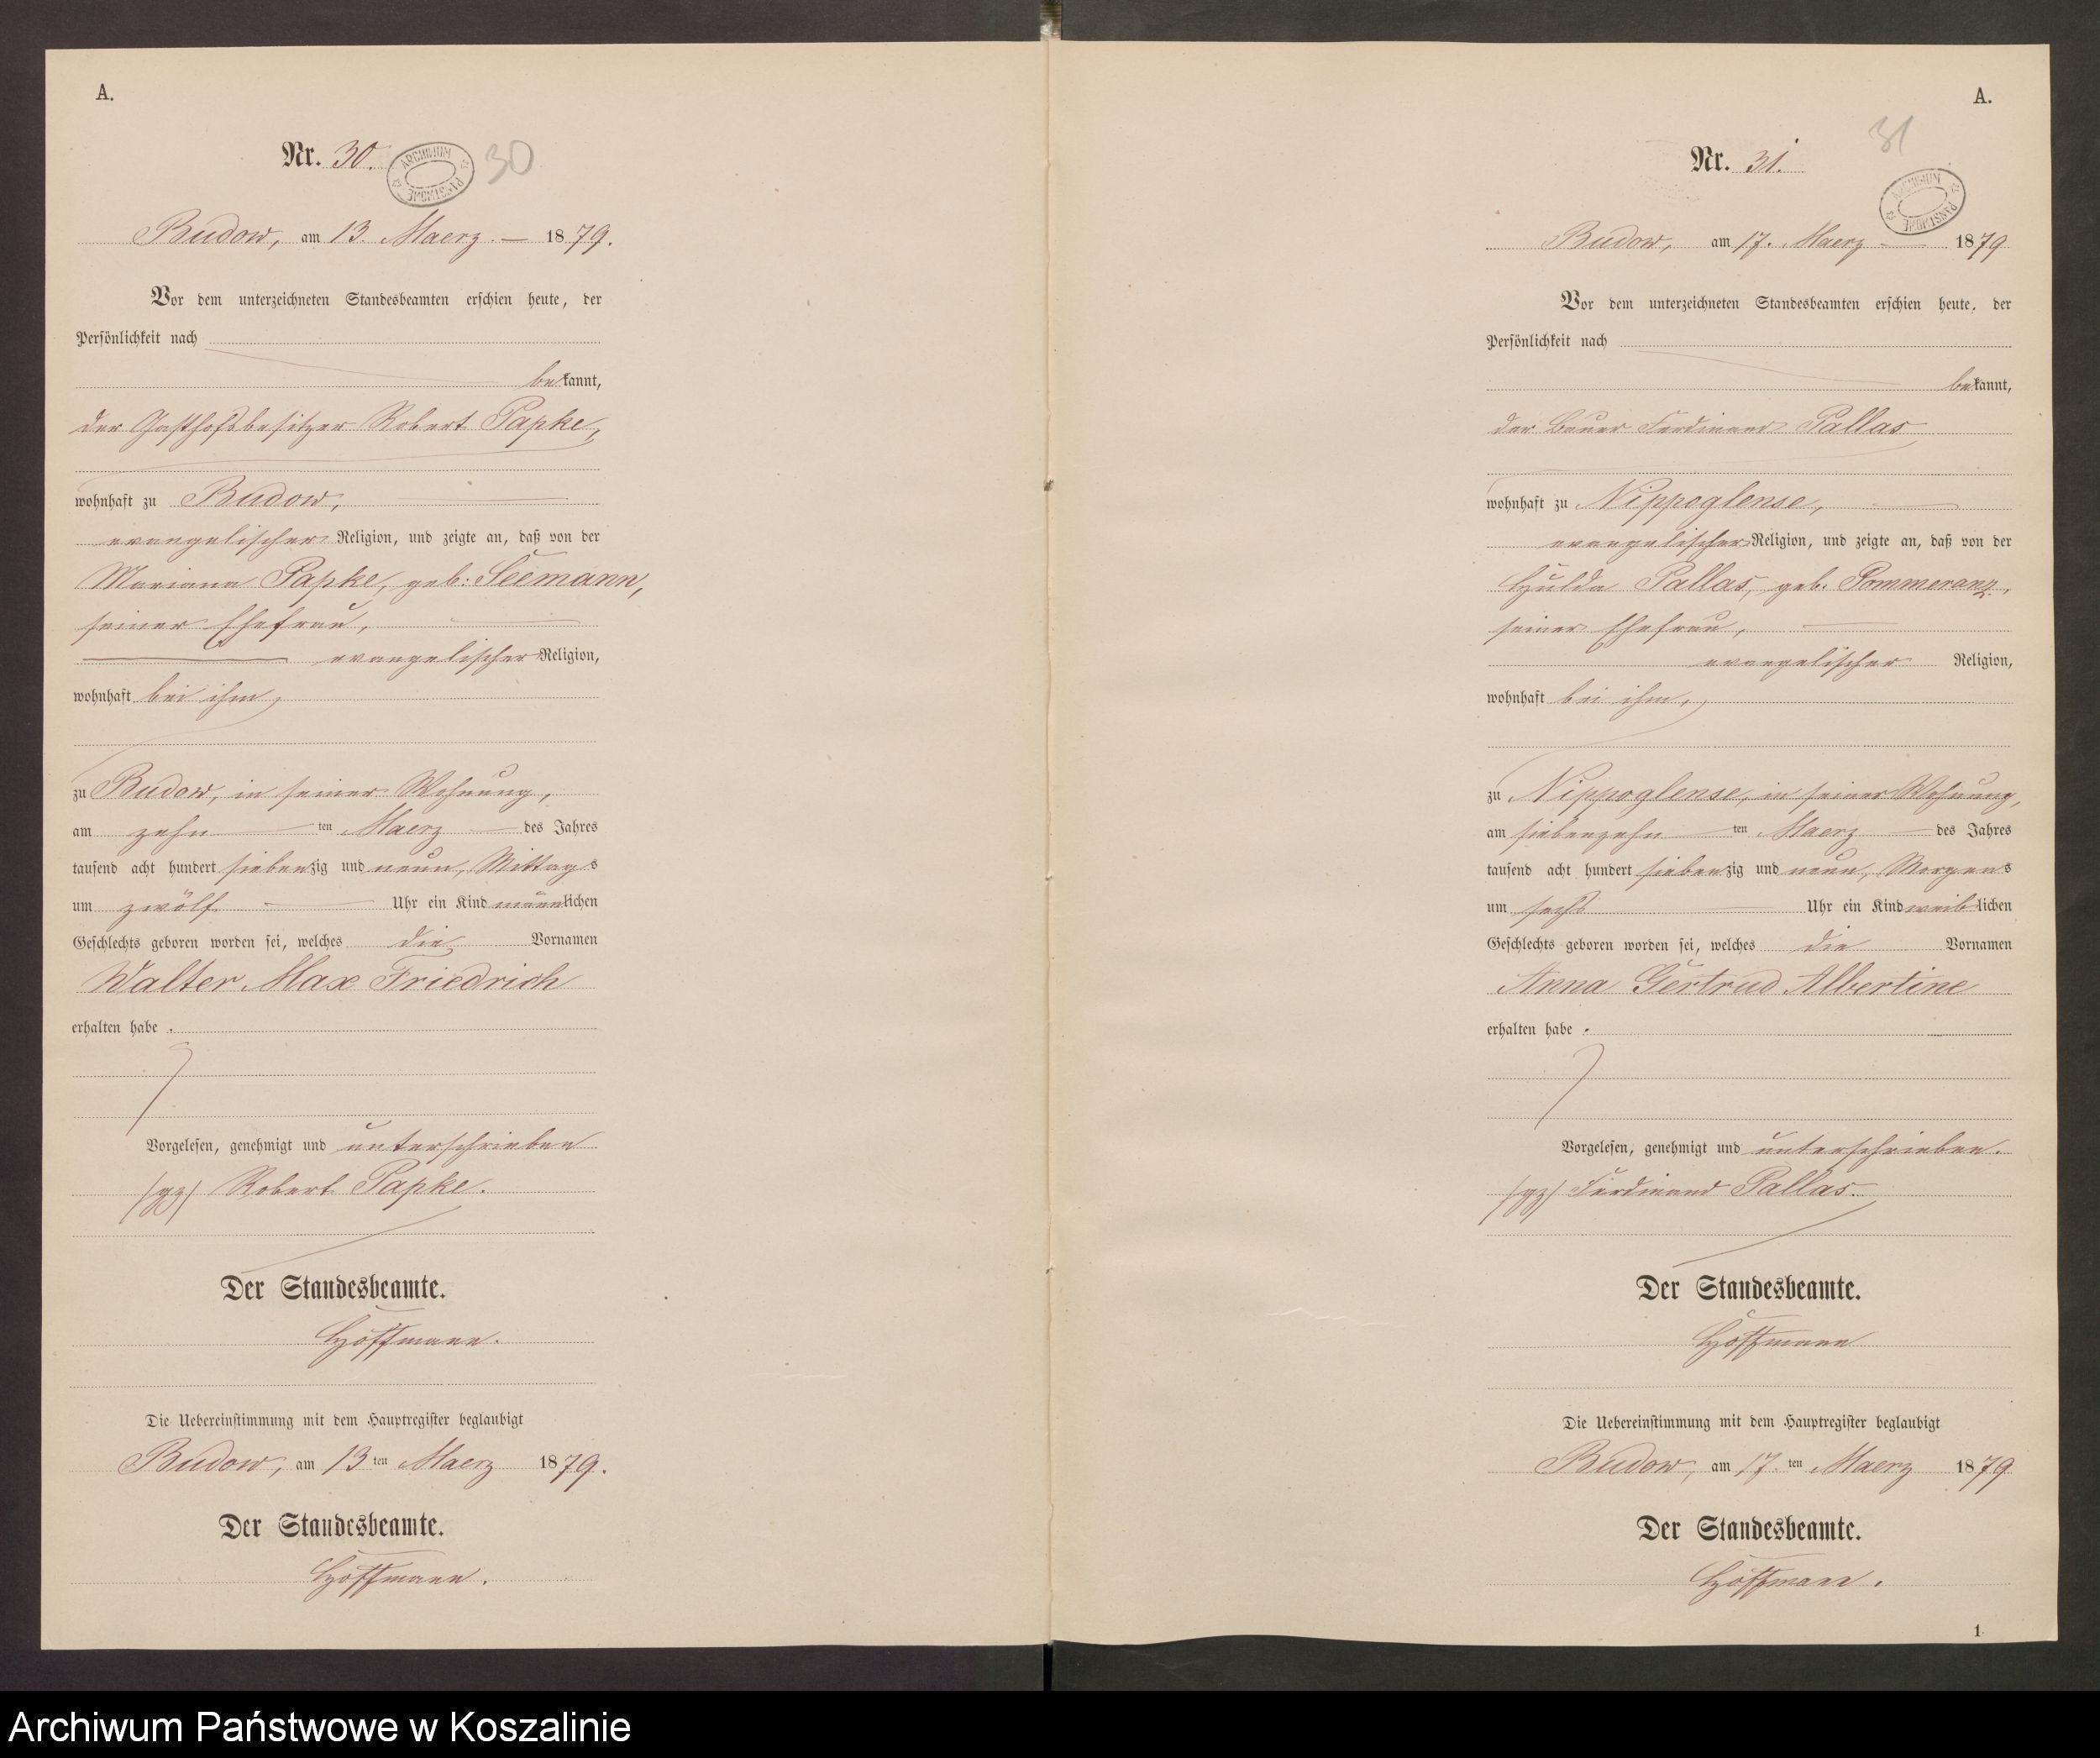 A.
Nr. 30.
ARCHIWUM PAŃSTWOWE
30
Budow, am 13. Maerz 1879.
Vor dem unterzeichneten Standesbeamten erschien heute, der
Persönlichkeit nach
bekannt,
der Gasthofsbesitzer Robert Papke,
wohnhaft zu Budow,
evangelischer Religion, und zeigte an, daß von der
Mariana Papke, geb: Seemann,
seiner Ehefrau,
evangelischer Religion,
wohnhaft bei ihm,
zu Budow, in seiner Wohnung,
am zehn ten Maerz des Jahres
tausend acht hundert siebenzig und neun, Mittags
um zwölf Uhr ein Kind männlichen
Geschlechts geboren worden sei, welches die Vornamen
Walter Max Friedrich
erhalten habe.
Vorgelesen, genehmigt und unterschrieben
/gz/ Robert Papke.
Der Standesbeamte.
Hoffmann.
Die Uebereinstimmung mit dem Hauptregister beglaubigt
Budow, am 13ten Maerz 1879.
Der Standesbeamte.
Hoffmann.
A.
31
Nr. 31.
ARCHIWUM PAŃSTWOWE
Budow, am 17. Maerz 1879
Vor dem unterzeichneten Standesbeamten erschien heute, der
Persönlichkeit nach
bekannt,
der Bauer Ferdinand Pallas
wohnhaft zu Nippoglense,
evangelischer Religion, und zeigte an, daß von der
Hulda Pallas, geb. Pommeranz,
seiner Ehefrau,
evangelischer Religion,
wohnhaft bei ihm,
zu Nippoglense, in seiner Wohnung,
am siebenzehn ten Maerz des Jahres
tausend acht hundert siebenzig und neun, Morgens
um sechs Uhr ein Kind weiblichen
Geschlechts geboren worden sei, welches die Vornamen
Anna Gertrud Albertine
erhalten habe.
Vorgelesen, genehmigt und unterschrieben.
/gz/ Ferdinand Pallas
Der Standesbeamte.
Hoffmann
Die Uebereinstimmung mit dem Hauptregister beglaubigt
Budow, am 17.ten Maerz 1879
Der Standesbeamte.
Hoffmann.
1
Archiwum Państwowe w Koszalinie